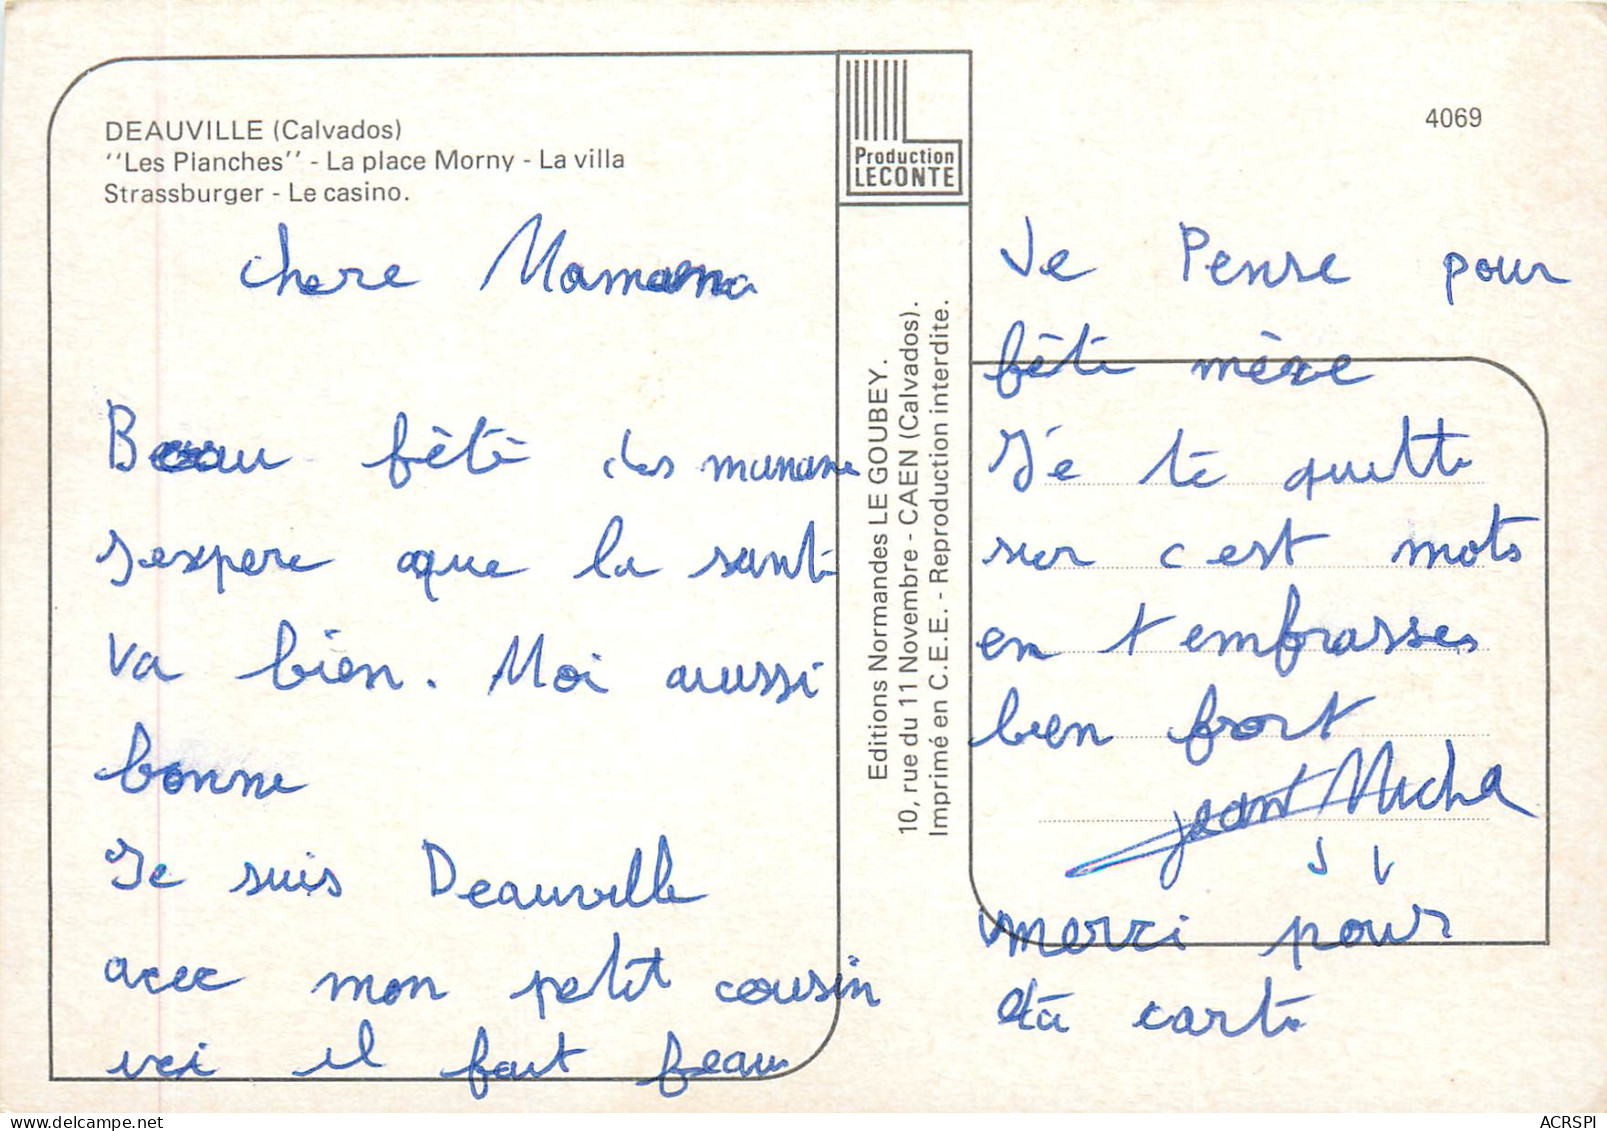 DEAUVILLE (Calvados)
"Les Planches" - La place Morny - La villa
Strassburger - Le casino.
Production
LECONTE
4069
Editions Normandes LE GOUBEY.
10, rue du 11 Novembre - CAEN (Calvados).
Imprimé en C.E.E. - Reproduction interdite.
chere
fêtè des
Jexpere que la santi
va bien. Moi aussi
bonne
Je suis Deauville
avec mon petit cousin
ici il fait beau
Je Pense pour
fête mère
J'e te quitte
sur c'est mots
en t'embrasses
bien fort
jean Micha
merci pour
ta carte
ACRSPI